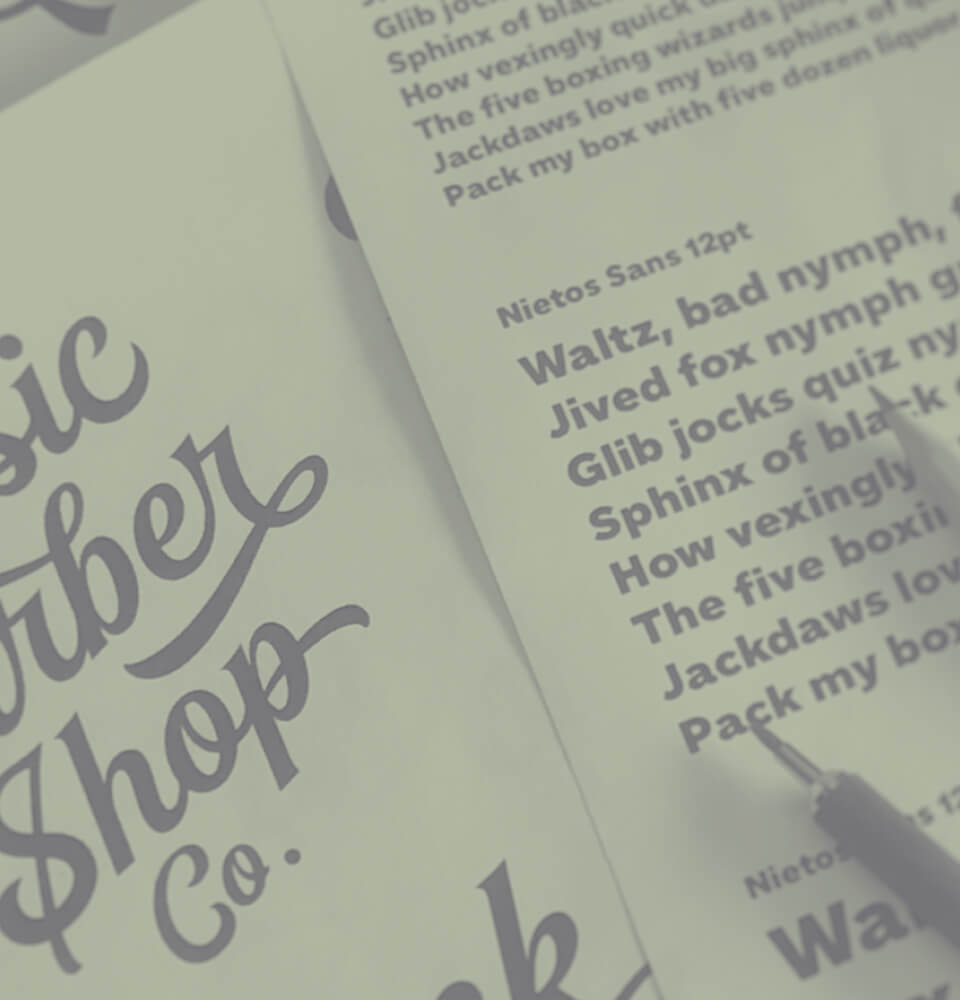 sic
rber
Shop
Co.
k
Glib
Sphinx of
How vexingly quick
The five boxing wizards
Jackdaws love my big sphinx of
Pack my box with five dozen liquor
Nietos Sans 12pt
Waltz, bad nymph,
Jived fox nymph
Glib jocks quiz ny
Sphinx of bla k
How vexingly
The five boxi
Jackdaws lov
Pack my box
Nietos s 12
Wa